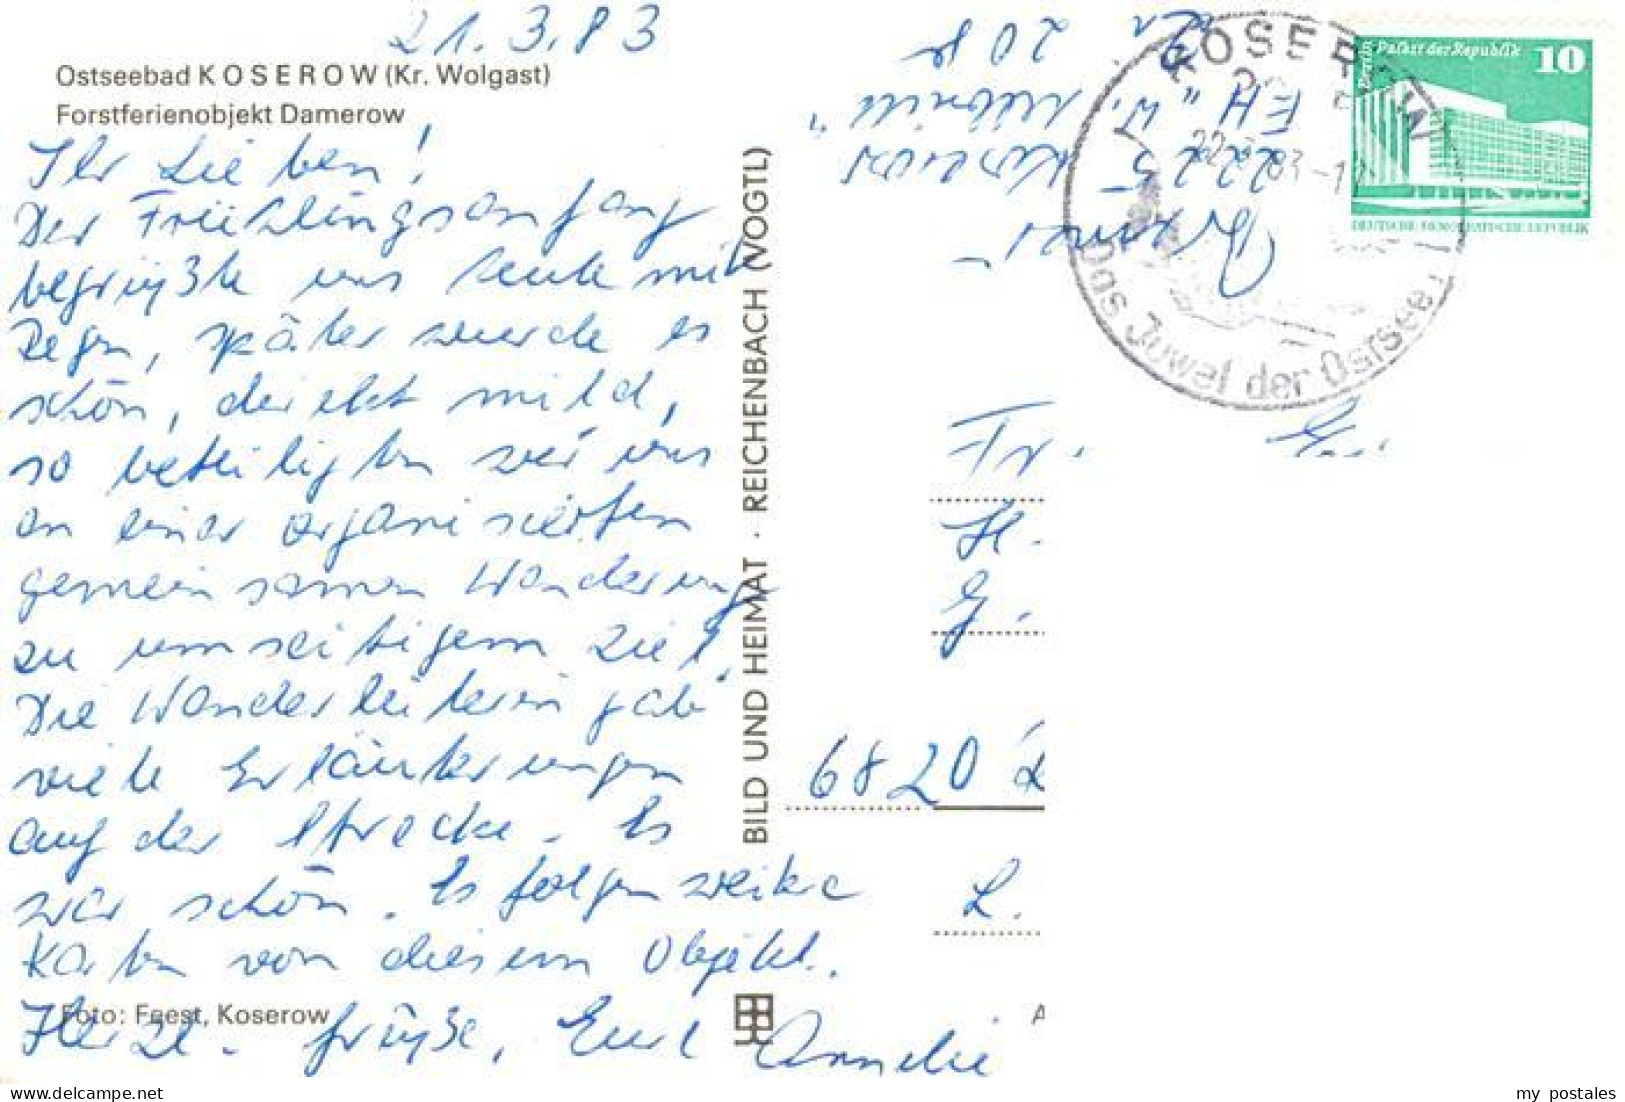 21.3.83
Ostseebad KOSEROW (Kr. Wolgast)
Forstferienobjekt Damerow
Ihr Lieben!
Der Frühlingsanfang
begrüßte uns heute mit
Regen, später wurde es
schön, direkt mild,
so beteiligten wir uns
an einer organisierten
gemeinsamen Wanderung
zu umseitigem Ziel,
Die Wanderleiterin gab
viele Erläuterungen
auf der Strecke. Es
war schön. Es folgen weitere
Karten von diesem Objekt.
Herzl. Grüße, Eure Annelie
Foto: Feest, Koserow
BILD UND HEIMAT · REICHENBACH (VOGTL)
2225 Koserow
EH "W.
KOSEROW
22.3.83-17
Das Juwel der Ostsee
Berlin Palast der Republik
10
DEUTSCHE DEMOKRATISCHE REPUBLIK
Fr.
H.
G.
6820
L.
A
my postales